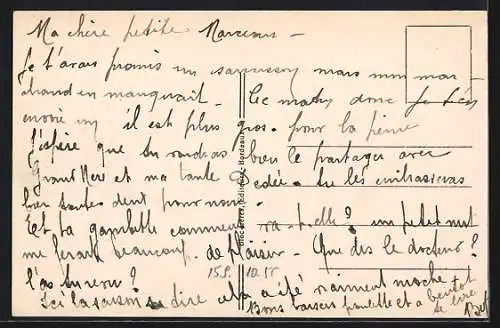 Ma chère petite Marceau -
Je t'avais promis un saucisson mais mon mar-
chand en manquait. - Ce matin donc je t'en
envoie un il est plus gros. pour la peine
J'espère que tu voudras bien le partager avec
Grand Mère et ma tante Dédée. - tu les embrasseras
bien toutes deux pour nous.
Et ta gambette comment va-t-elle? un petit mot
me ferait beaucoup de plaisir - Que dit le docteur?
l'as tu revu?
Ici la saison se dire a été vraiment moche -
Bons baisers poulette et a bientot
de te lire
15 S. 10.
Bordeaux